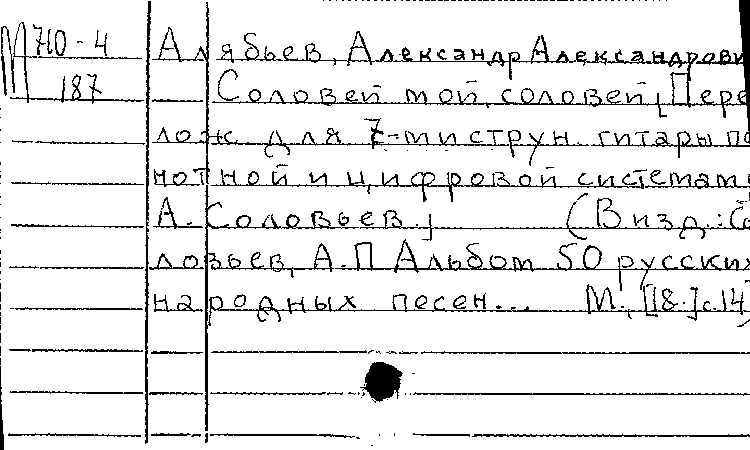 М 710-4 Алябьев, Александр Александрови
187 Соловей мой, соловей, [Пере
лож для 7-ми струн. гитары по
нотной и цифровой системам
А. Соловьев.] (В изд.: Со
ловьев, А.П Альбом 50 русских
народных песен... М., [18.] с.14)